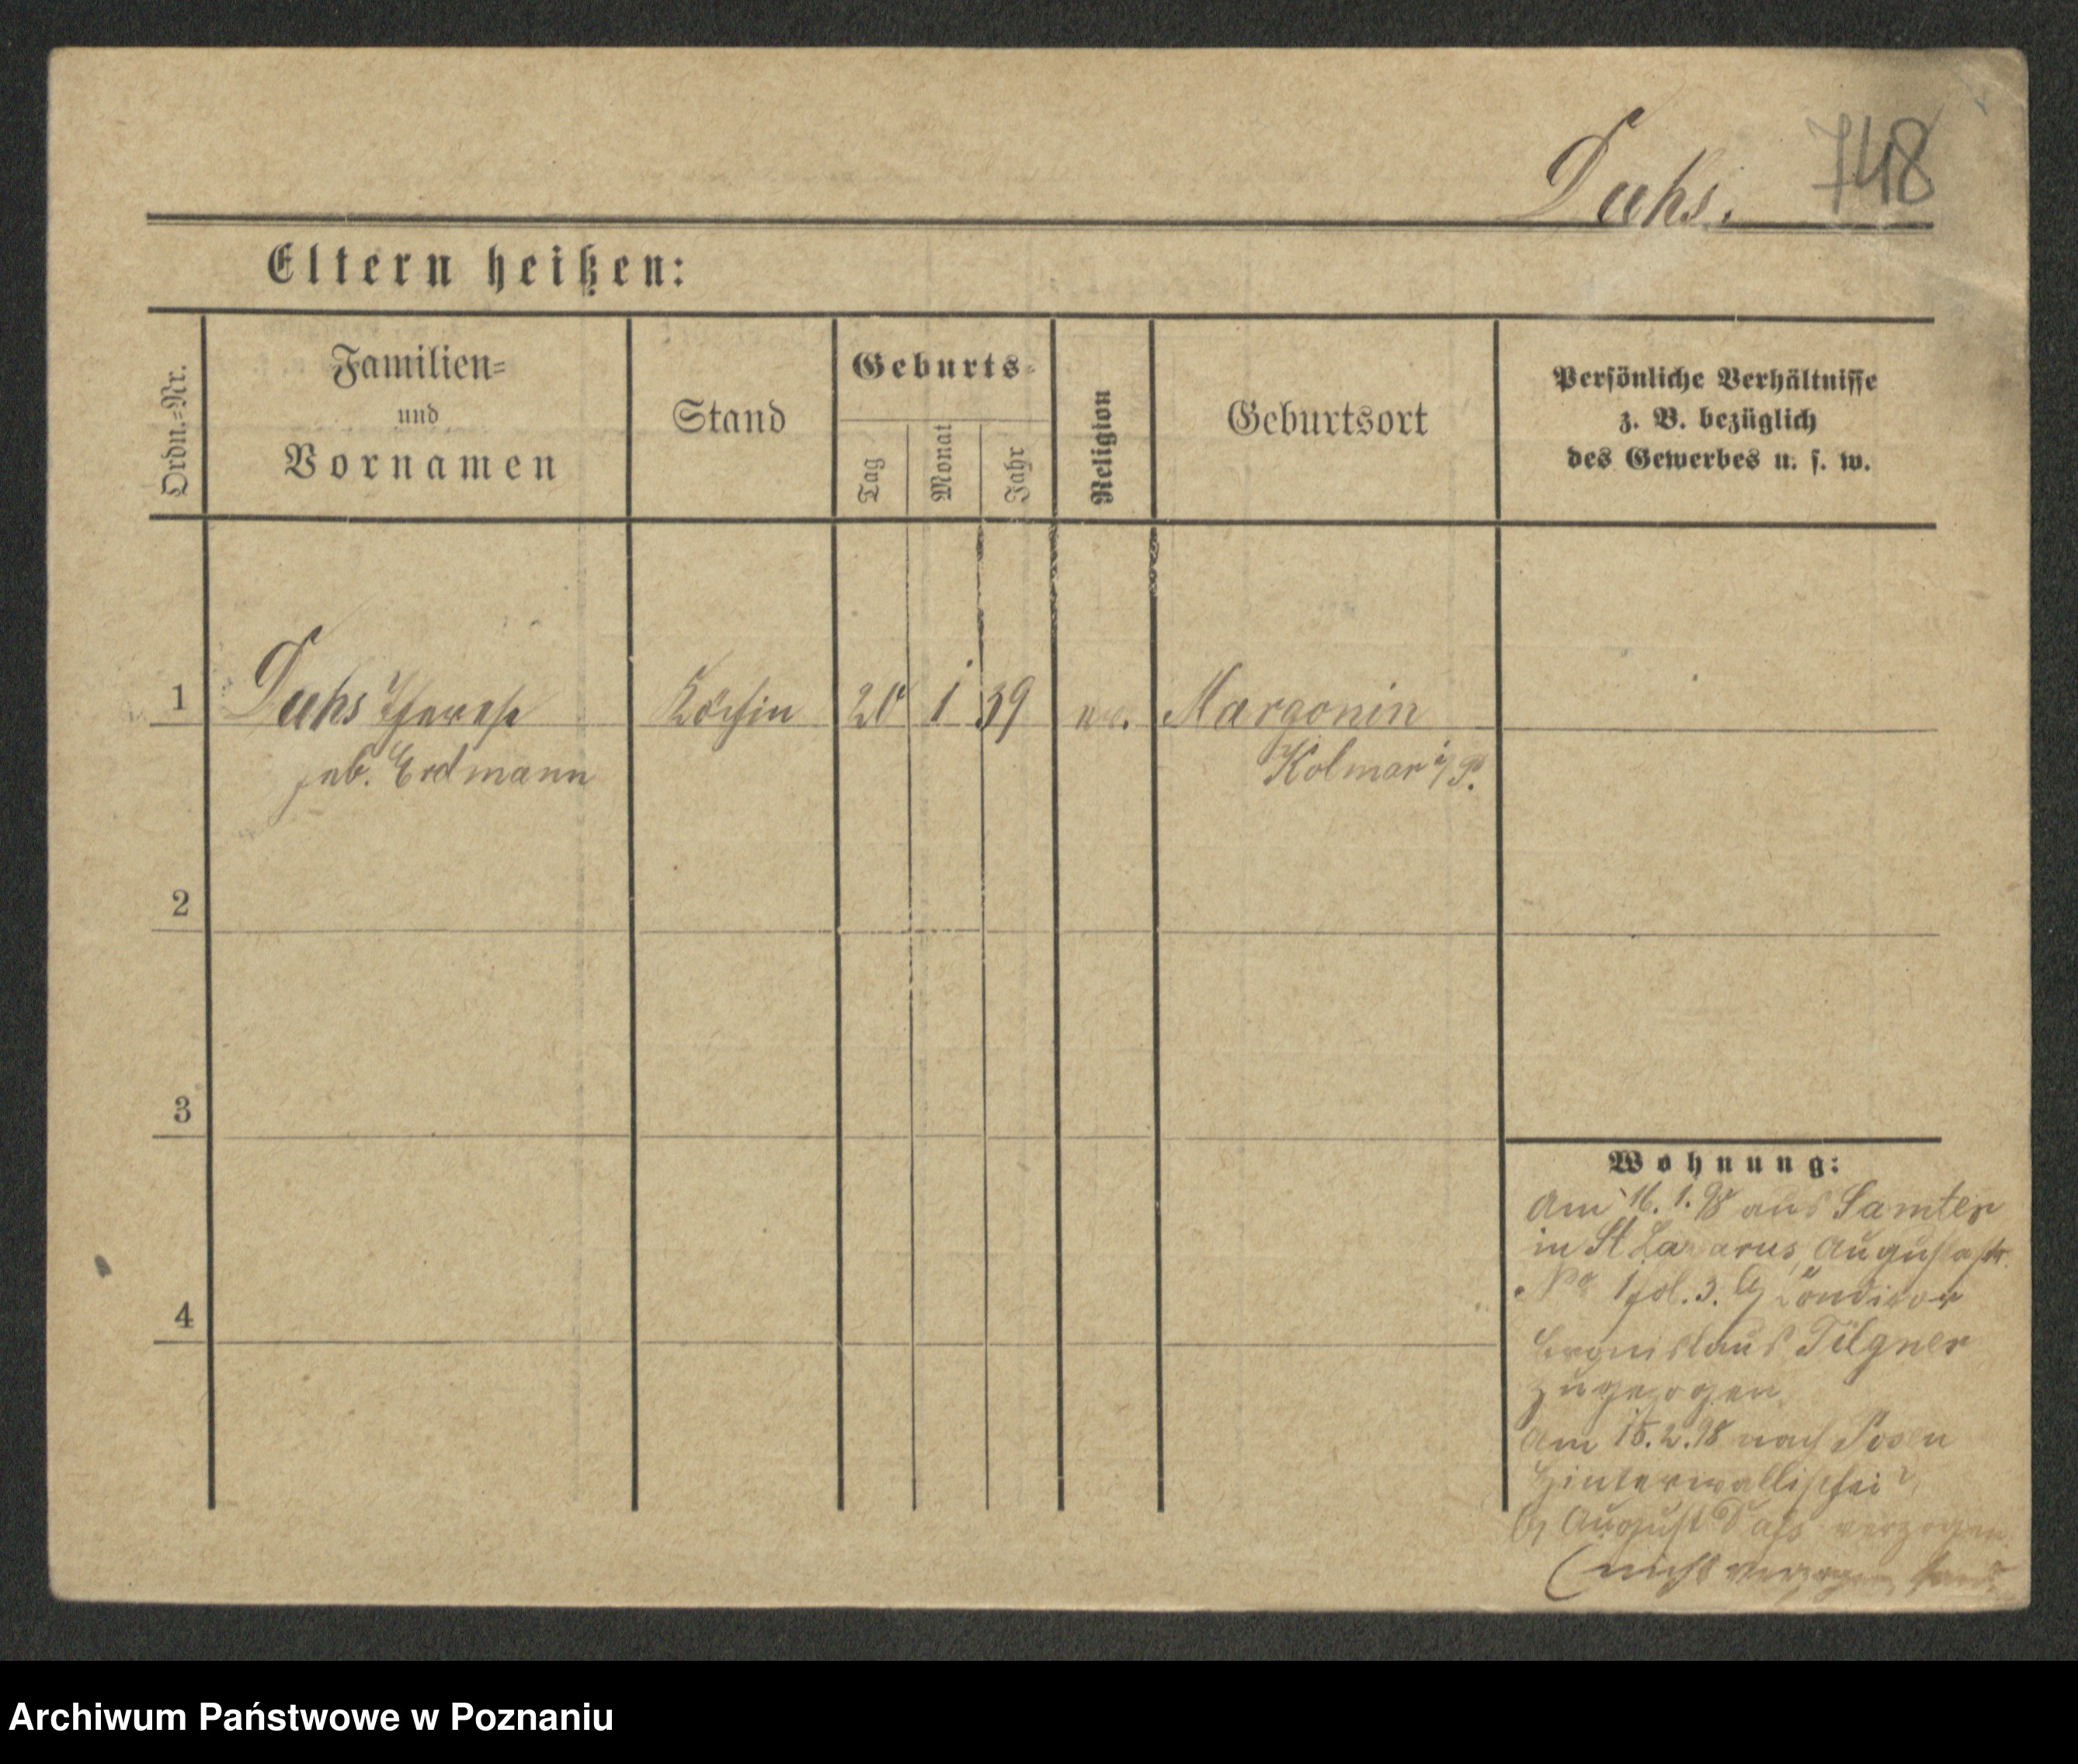 748
Duhs.
Eltern heißen:
Ordn.=Nr.
Familien=
und
Vornamen
Stand
Geburts=
Tag
Monat
Jahr
Religion
Geburtsort
Persönliche Verhältnisse
z. B. bezüglich
des Gewerbes u. s. w.
1 Duhs Therese Köchin 20 1 39 ev. Margonin
geb. Erdmann Kolmar i/P.
2
3
4
Wohnung:
Am 16. 1. 98 aus Samter
in St Lazarus, Augustastr.
No 1 fol. 3. bj
Bronislaus Tilgner
zugezogen
Am 15. 2. 98 nach Posen
Hinterwallischei
bj August Dahs verzogen
(nicht verzogen
Archiwum Państwowe w Poznaniu